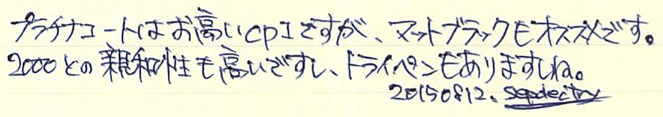 プラチナコートはお高いcpIですが、マットブラックもオススメです。
2000との親和性も高いですし、ドライペンもありますしね。
20150812、